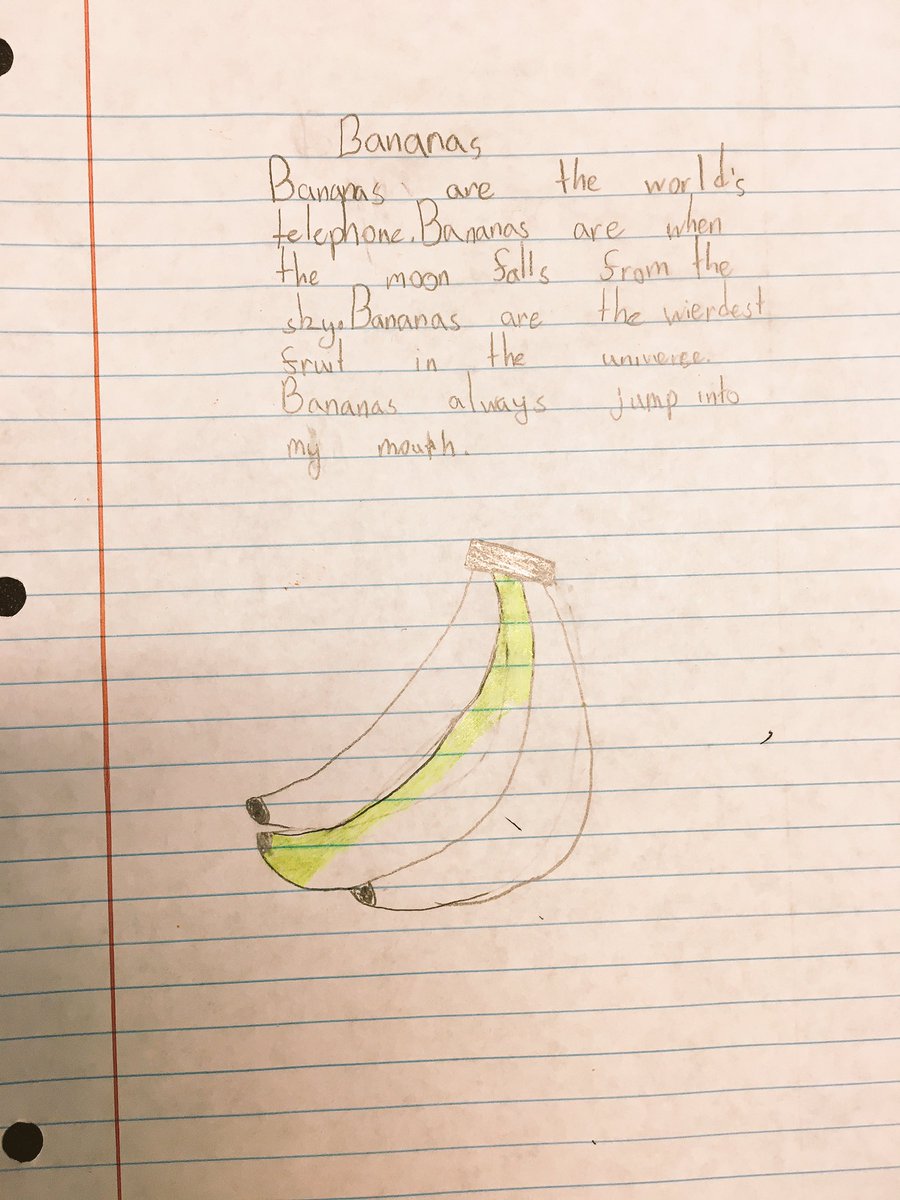 Bananas
Bananas are the world's
telephone. Bananas are when
the moon falls from the
sky. Bananas are the wierdest
fruit in the universe.
Bananas always jump into
my mouth.